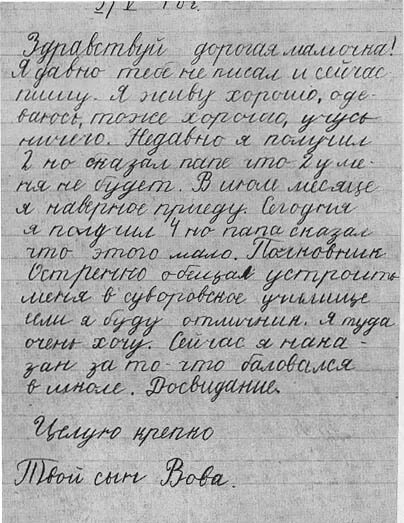 Здравствуй дорогая мамочка!
Я давно тебе не писал и сейчас
пишу. Я живу хорошо, оде-
ваюсь, тоже хорошо, учусь
ничего. Недавно я получил
2 но сказал папе что 2 у ме-
ня не будет. В июле месяце
я наверное приеду. Сегодня
я получил 4 но папа сказал
что этого мало. Полковник
обещал устроить
меня в суворовское училище
если я буду отличник. Я туда
очень хочу. Сейчас я нака-
зан за то-что баловался
в школе. Досвидание.
Целую крепко
Твой сын Вова.